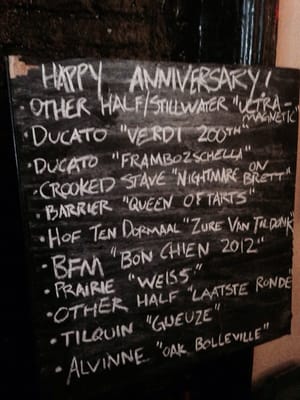 HAPPY ANNIVERSARY!
· OTHER HALF/STILLWATER "ULTRA-
MAGNETIC"
· DUCATO "VERDI 200TH"
· DUCATO "FRAMBOZSCHELLA"
· CROOKED STAVE "NIGHTMARE ON
BRETT"
· BARRIER "QUEEN OF TARTS"
· HOF TEN DORMAAL "ZURE VAN TILDONK"
· BFM "BON CHIEN 2012"
· PRAIRIE "WEISS"
· OTHER HALF "LAATSTE RONDE"
· TILQUIN "GUEUZE"
· ALVINNE "OAK BOLLEVILLE"